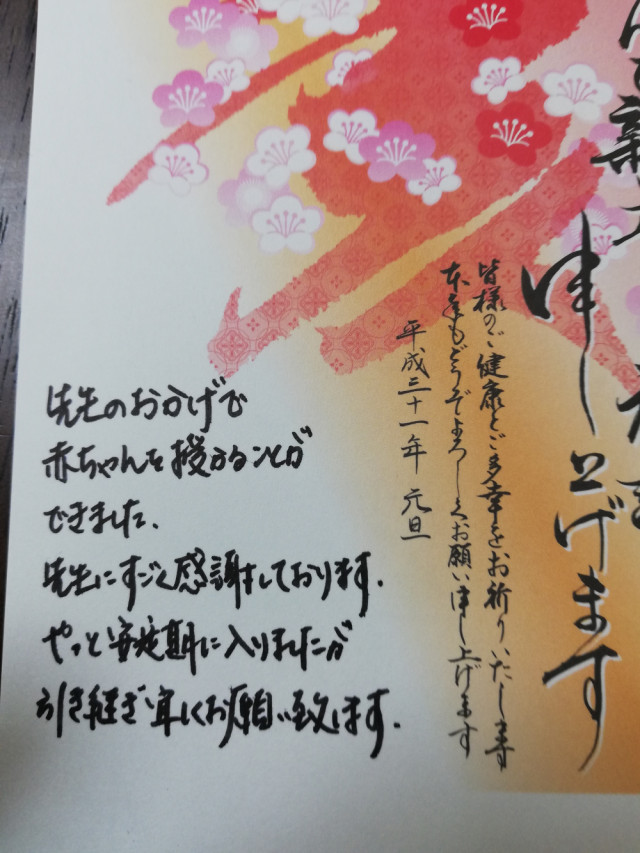 申し上げます
皆様のご健康とご多幸をお祈りいたします
本年もどうぞよろしくお願い申し上げます
平成三十一年 元旦
先生のおかげで
赤ちゃんを授かることが
できました.
先生にすごく感謝しております.
やっと安定期に入りましたが
引き継ぎ宜しくお願い致します.